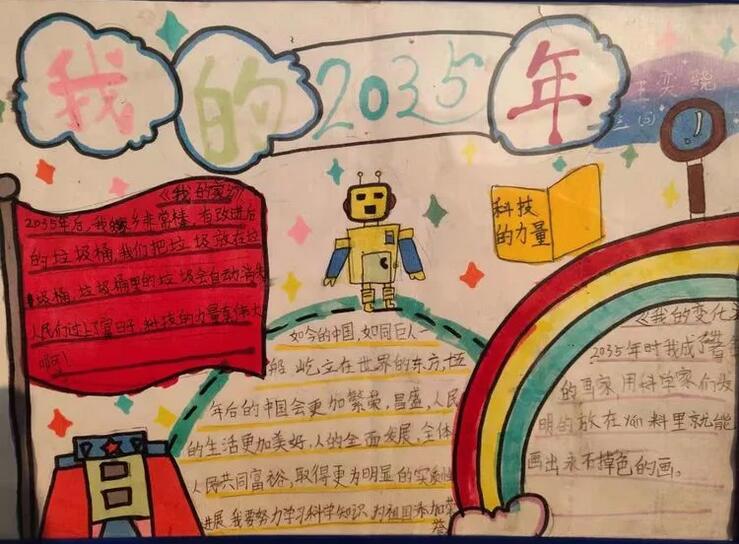 我的2035年
王奕骁
三
科技
的力量
《我的家乡》
2035年后,我的家乡非常棒,有改进后
的垃圾桶,我们把垃圾放在垃
圾桶,垃圾桶里的垃圾会自动消失
人民们过上了富日子,科技的力量真伟大
啊!
如今的中国,如同巨人一
般屹立在世界的东方,
年后的中国会更加繁荣,昌盛,人民
的生活更加美好,人的全面发展,全体
人民共同富裕,取得更为明显的实质性
进展,我要努力学习科学知识,为祖国添加荣
誉
《我的变化》
2035年时我成
的画家,用科学家们发
明的放在yán料里就能
画出永不掉色的画。